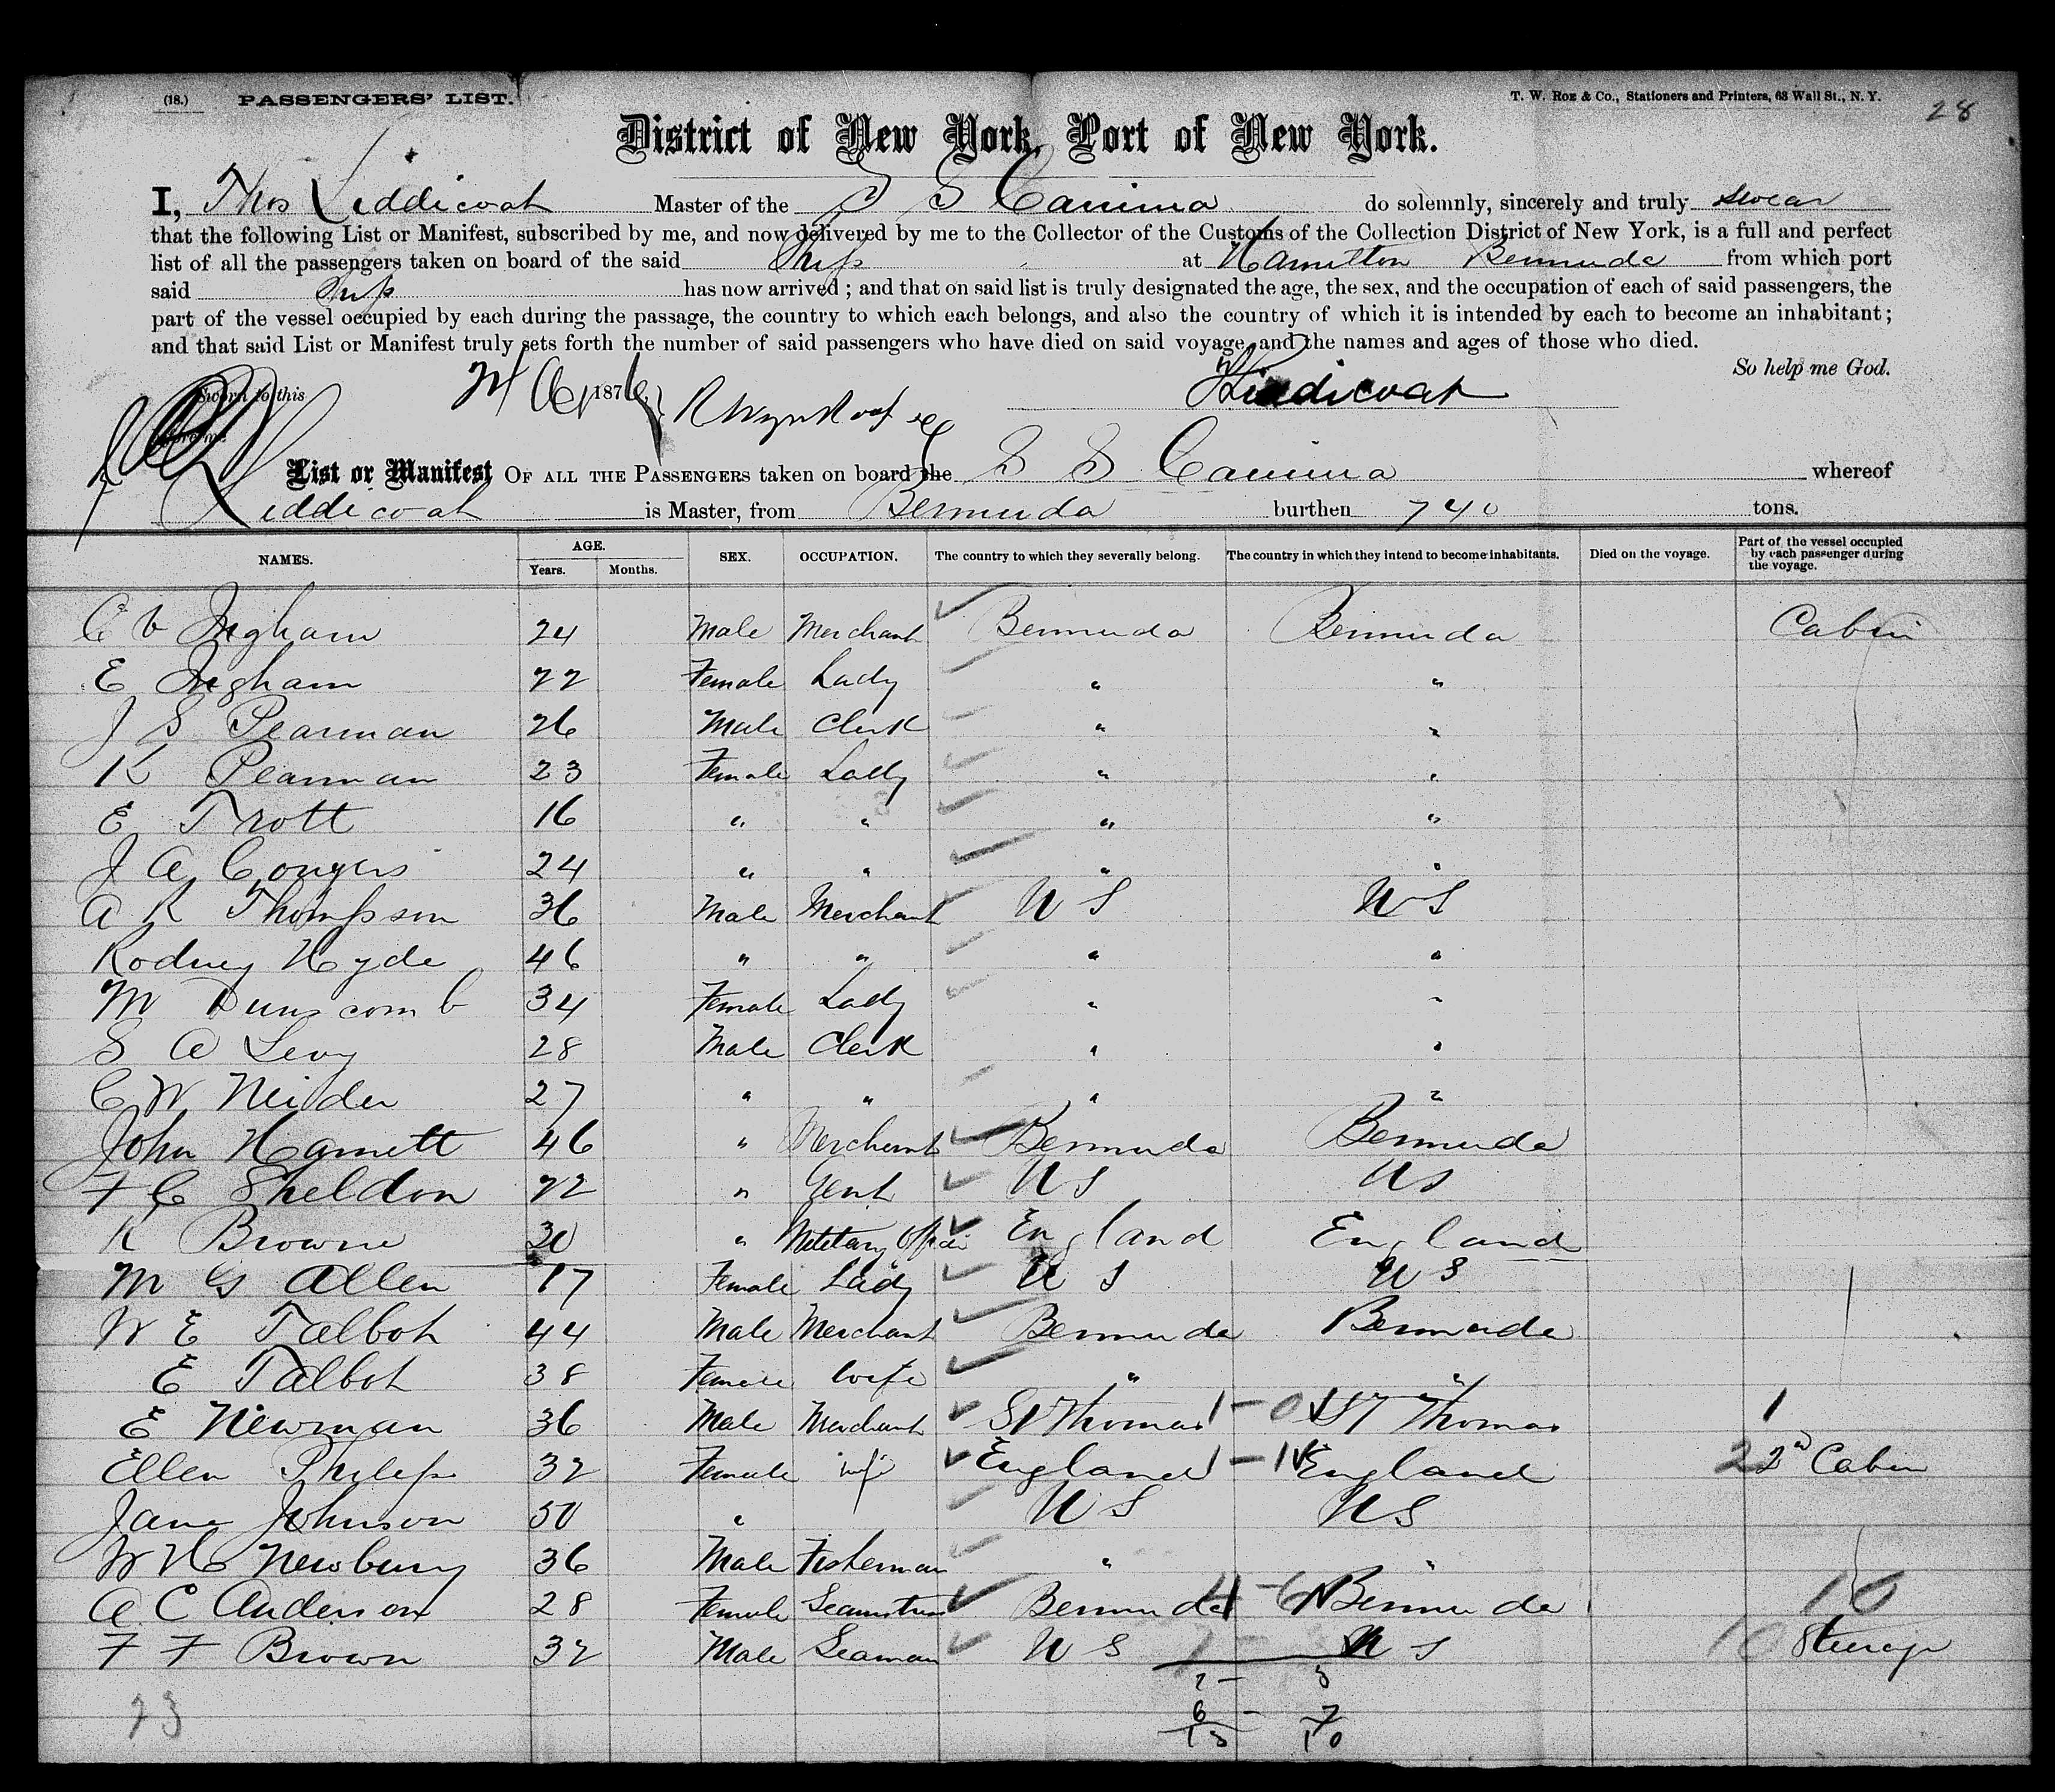 (18.) PASSENGERS' LIST. T. W. Roe & Co., Stationers and Printers, 63 Wall St., N. Y. 28
District of New York, Port of New York.
I, Thos Liddicoat Master of the S S Canima do solemnly, sincerely and truly swear
that the following List or Manifest, subscribed by me, and now delivered by me to the Collector of the Customs of the Collection District of New York, is a full and perfect
list of all the passengers taken on board of the said Ship at Hamilton Bermuda from which port
said Ship has now arrived; and that on said list is truly designated the age, the sex, and the occupation of each of said passengers, the
part of the vessel occupied by each during the passage, the country to which each belongs, and also the country of which it is intended by each to become an inhabitant;
and that said List or Manifest truly sets forth the number of said passengers who have died on said voyage, and the names and ages of those who died.
So help me God.
Sworn to this 1876 Liddicoat
before me
List or Manifest OF ALL THE PASSENGERS taken on board the S S Canima whereof
Liddicoat is Master, from Bermuda burthen 740 tons.
NAMES. AGE. Years. Months. SEX. OCCUPATION. The country to which they severally belong. The country in which they intend to become inhabitants. Died on the voyage. Part of the vessel occupied by each passenger during the voyage.
C V Ingham 24 Male Merchant Bermuda Bermuda Cabin
E Ingham 22 Female Lady " "
J S Pearman 26 Male Clerk " "
K Pearman 23 Female Lady " "
E Trott 16 " " " "
J A Conyers 24 " " " "
A R Thompson 36 Male Merchant U S U S
Rodney Hyde 46 " " " "
M Dunscomb 34 Female Lady " "
S A Levy 28 Male Clerk " "
C W Neider 27 " " " "
John Harnett 46 " Merchant Bermuda Bermuda
F C Sheldon 22 " Gent U S U S
K Browne 30 " Military England England
M G Allen 17 Female Lady U S U S
W E Talbot 44 Male Merchant Bermuda Bermuda
E Talbot 38 Female Wife " "
E Newman 36 Male Merchant St Thomas 1 - 0 St Thomas 1
Ellen Philips 32 Female Wife England 1 - 1 England 2 2nd Cabin
Jane Johnson 50 " U S U S
W H Newbury 36 Male Fisherman " "
A C Anderson 28 Female Seamstress Bermuda 4 - 6 Bermuda 10
F F Brown 32 Male Seaman U S U S 10 Steerage
7 - 3
6 - 7
23 13 10